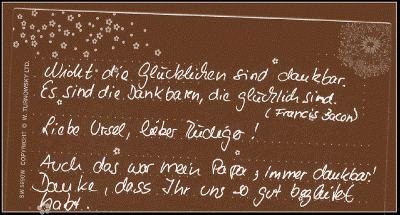 Nicht die Glücklichen sind dankbar.
Es sind die Dankbaren, die glücklich sind.
(Francis Bacon)
Liebe Ursel, lieber Rüdiger!
Auch das war mein Papa, immer dankbar!
Danke, dass Ihr uns so gut begleitet
habt.
SW 5590W COPYRIGHT © W. TURNOWSKY LTD.